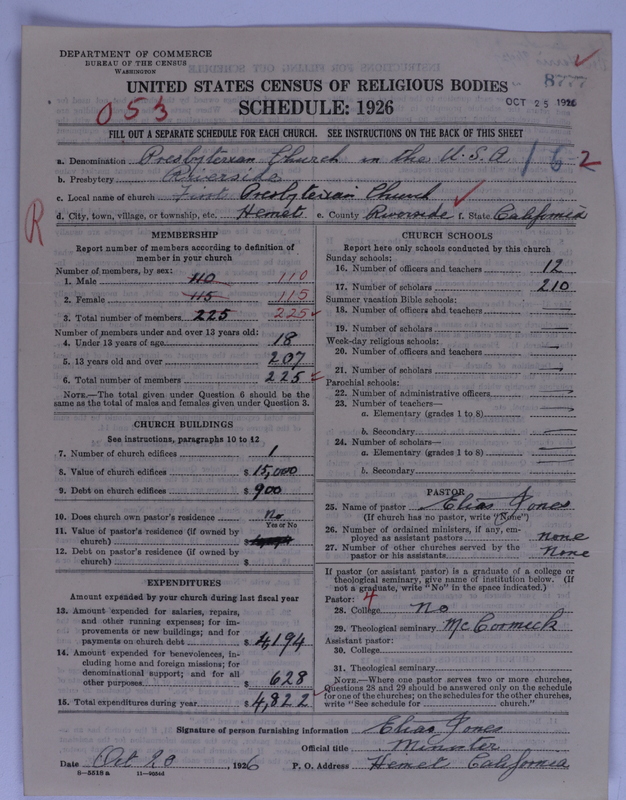 DEPARTMENT OF COMMERCE
BUREAU OF THE CENSUS
WASHINGTON
8777
UNITED STATES CENSUS OF RELIGIOUS BODIES
OCT 25 1926
053
SCHEDULE: 1926
FILL OUT A SEPARATE SCHEDULE FOR EACH CHURCH. SEE INSTRUCTIONS ON THE BACK OF THIS SHEET
a. Denomination Presbyterian Church in the U.S.A
16-2
b. Presbytery Riverside
c. Local name of church First Presbyterian Church
R
d. City, town, village, or township, etc. Hemet e. County Riverside f. State California
MEMBERSHIP
Report number of members according to definition of
member in your church
Number of members, by sex:
1. Male 110 110
2. Female 115 115
3. Total number of members 225 225
Number of members under and over 13 years old:
4. Under 13 years of age 18
5. 13 years old and over 207
6. Total number of members 225
NOTE.—The total given under Question 6 should be the
same as the total of males and females given under Question 3.
CHURCH BUILDINGS
See instructions, paragraphs 10 to 12
7. Number of church edifices 1
8. Value of church edifices $15,000
9. Debt on church edifices $900
10. Does church own pastor's residence No
Yes or No
11. Value of pastor's residence (if owned by
church) $
12. Debt on pastor's residence (if owned by
church) $
EXPENDITURES
Amount expended by your church during last fiscal year
13. Amount expended for salaries, repairs,
and other running expenses; for im-
provements or new buildings; and for
payments on church debt $4,194
14. Amount expended for benevolences, in-
cluding home and foreign missions; for
denominational support; and for all
other purposes $628
15. Total expenditures during year $4,822
CHURCH SCHOOLS
Report here only schools conducted by this church
Sunday schools:
16. Number of officers and teachers 12
17. Number of scholars 210
Summer vacation Bible schools:
18. Number of officers and teachers —
19. Number of scholars —
Week-day religious schools:
20. Number of officers and teachers —
21. Number of scholars —
Parochial schools:
22. Number of administrative officers —
23. Number of teachers—
a. Elementary (grades 1 to 8) —
b. Secondary —
24. Number of scholars—
a. Elementary (grades 1 to 8) —
b. Secondary —
PASTOR
25. Name of pastor Elias Jones
(If church has no pastor, write "None")
26. Number of ordained ministers, if any, em-
ployed as assistant pastors none
27. Number of other churches served by the
pastor or his assistants None
If pastor (or assistant pastor) is a graduate of a college or
theological seminary, give name of institution below. (If
not a graduate, write "No" in the space indicated.)
Pastor: 4
28. College No
29. Theological seminary McCormick
Assistant pastor:
30. College
31. Theological seminary
NOTE.—Where one pastor serves two or more churches,
Questions 28 and 29 should be answered only on the schedule
for one of the churches; on the schedules for the other churches,
write "See schedule for church."
Signature of person furnishing information Elias Jones
Official title Minister
Date Oct 20, 1926 P. O. Address Hemet California
8—5518 a 11—9654d